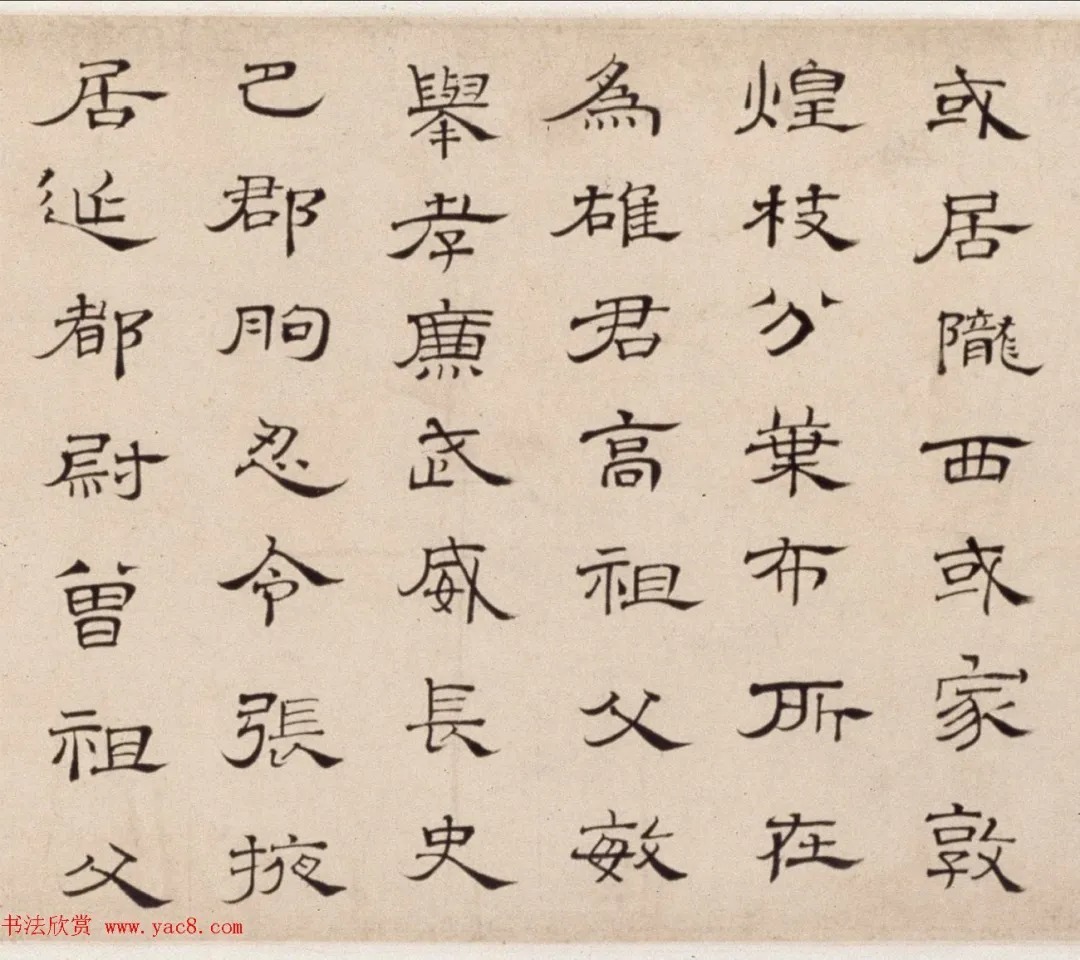 或居隴西或家敦
煌枝分葉布所在
為雄君高祖父敏
舉孝廉武威長史
巴郡朐忍令張掖
居延都尉曾祖父
书法欣赏 www.yac8.com